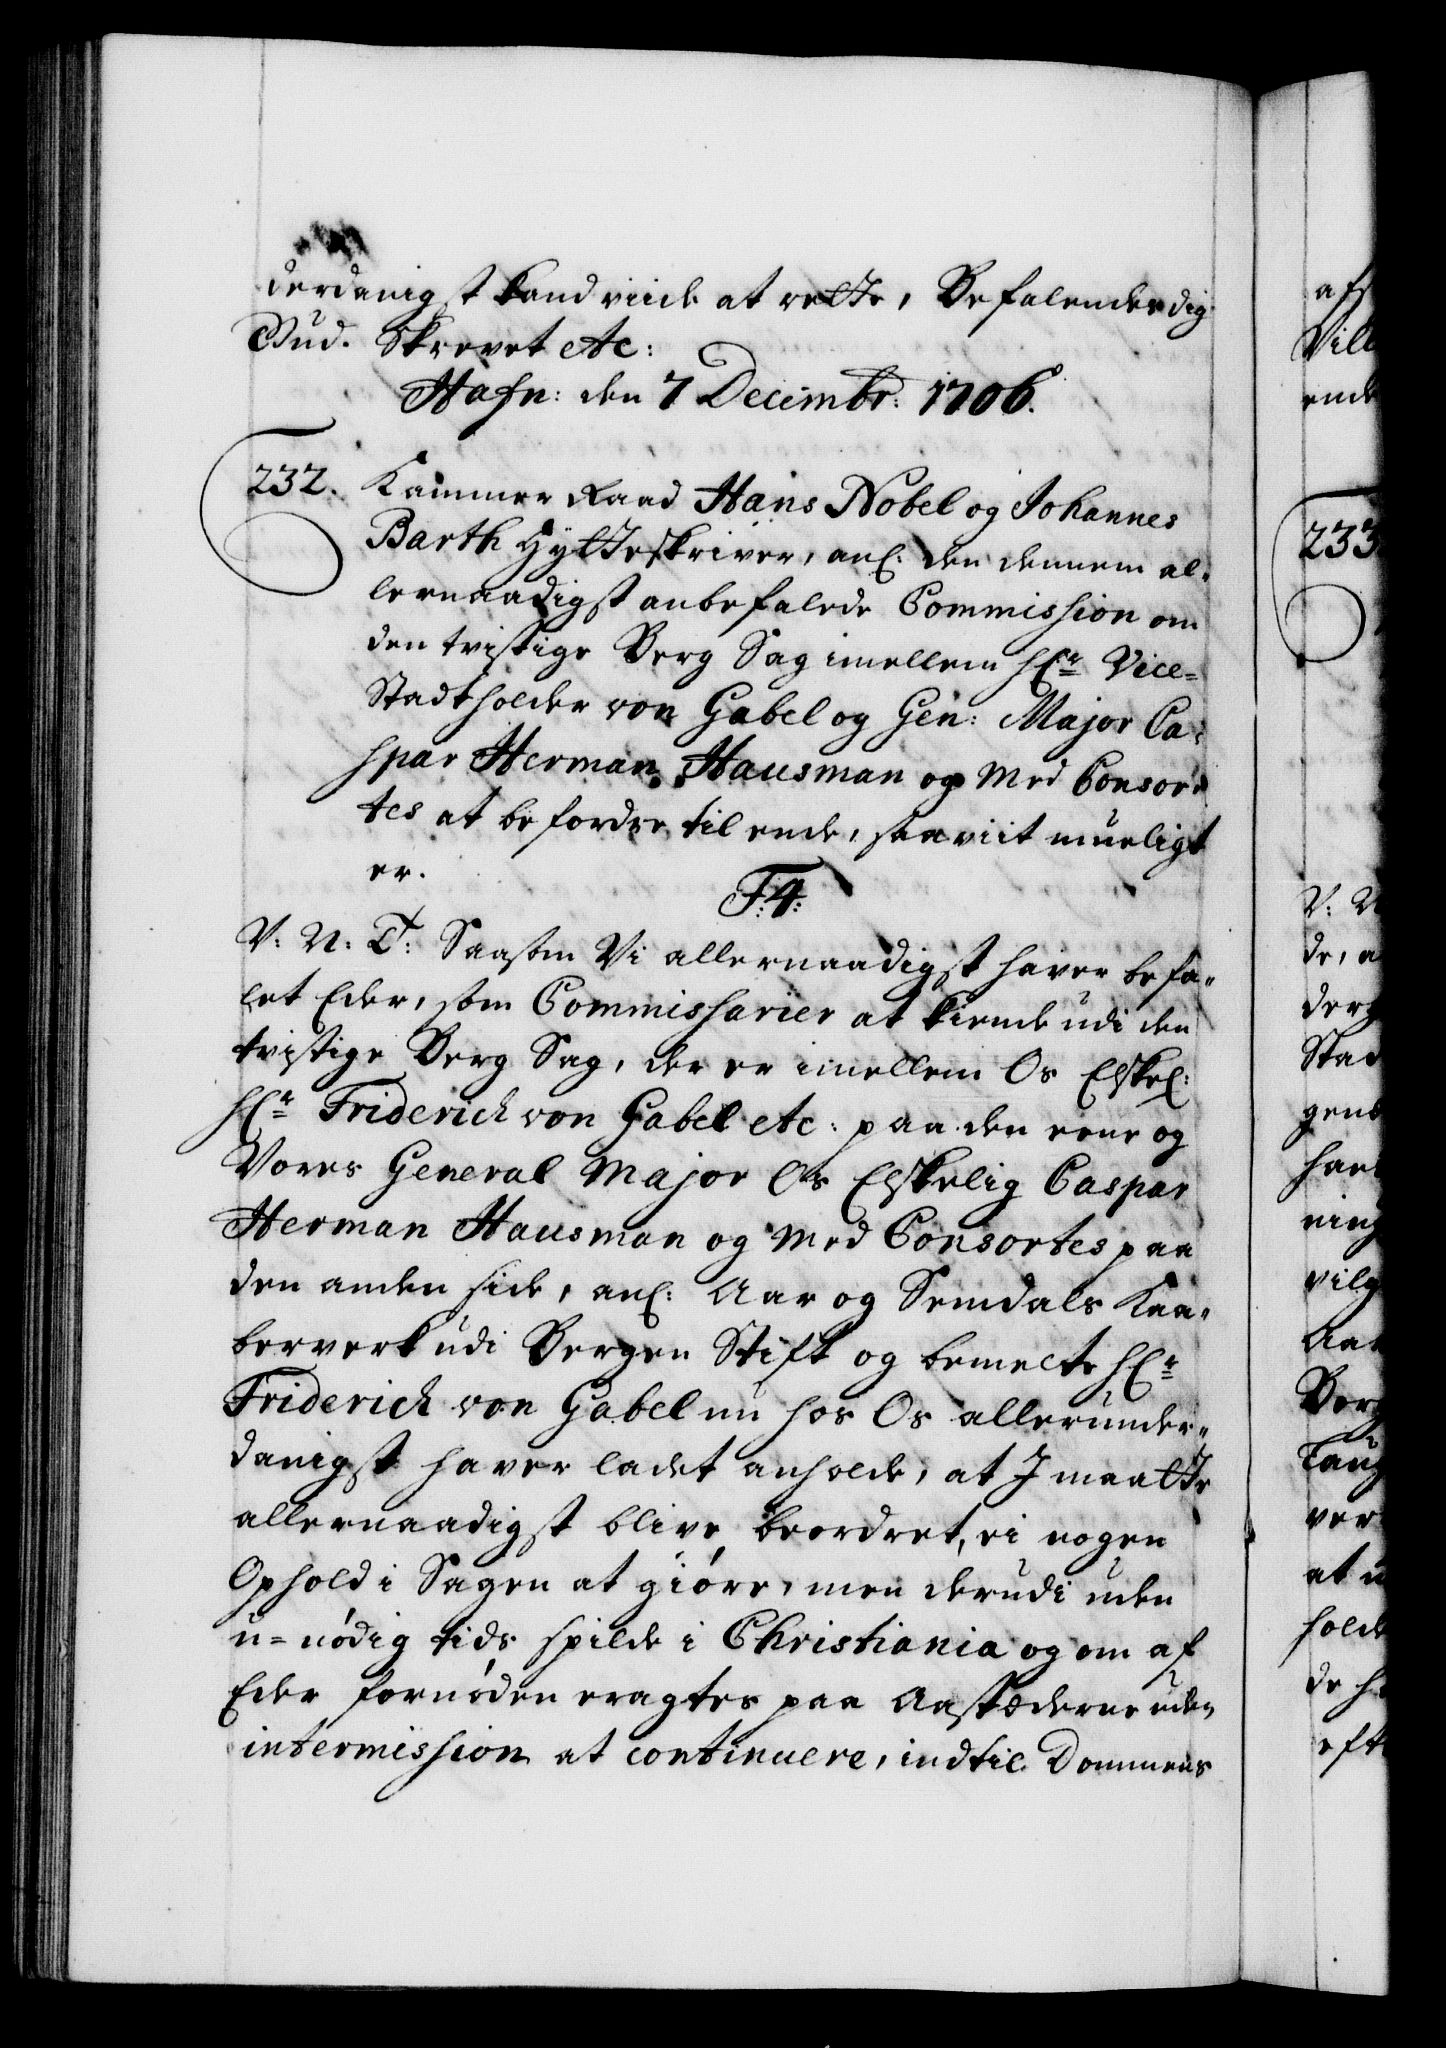 derdanigst kand viide at rette, Befalendes dig
Gud. Skrevet etc:
Hafn: den 7 Decembr: 1706.
232. Kammer Raad Hans Nobel og Johannes
Barth Hytteskriver, anl: den dennem al-
lernaadigst anbefalede Commission om
den tvistige Berg Sag imellem Hr Vice-
Stadtholder von Gabel og Gen: Major Ca-
spar Herman Hausman og Med Consor-
tes at befordre til ende, saa viit mueligt
er.
F. 4:
V: N: T: Saasom Vi allernaadigst haver befa-
let Eder, som Commissarier at kiende udi den
tvistige Berg Sag, der er imellem Os Elskel:
Hr Friderich von Gabel etc: paa den eene og
Vores General Major Os Elskelig Caspar
Herman Hausman og Med Consortes paa
den anden side, anl: Aar og Semdals Kaa-
berverk udi Bergen Stift og bemelte Hr
Friderich von Gabel nu hos Os allerunder-
danigst haver ladet anholde, at I maatte
allernaadigst blive beordret, ei nogen
Ophold i Sagen at giöre, men derudi uden
u-nödig tids spilde i Christiania og om af
Eder fornöden eragtes paa Aastæderne uden
intermission at continuere, indtil Dommens
233